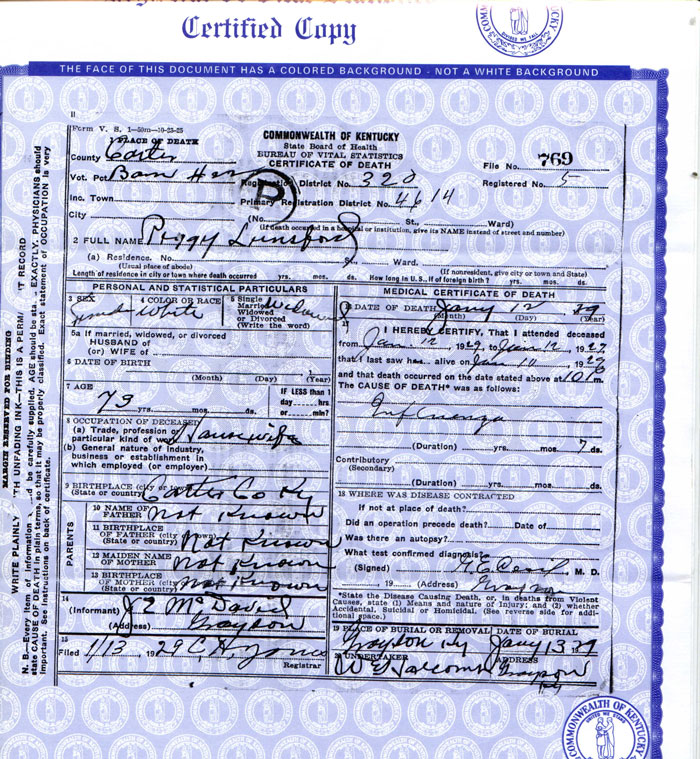 Certified Copy
THE FACE OF THIS DOCUMENT HAS A COLORED BACKGROUND - NOT A WHITE BACKGROUND
Form V. S. 1—50m—10-23-25
PLACE OF DEATH
COMMONWEALTH OF KENTUCKY
State Board of Health
BUREAU OF VITAL STATISTICS
CERTIFICATE OF DEATH
County Carter
File No. 769
Vot. Pct. Registration District No. 320 Registered No. 5
Inc. Town Primary Registration District No. 4614
City (No. St., Ward)
(If death occurred in a hospital or institution, give its NAME instead of street and number)
2 FULL NAME Peggy Lunsford
(a) Residence. No. St., Ward.
(Usual place of abode) (If nonresident, give city or town and State)
Length of residence in city or town where death occurred yrs. mos. ds. How long in U.S., if of foreign birth? yrs. mos. ds.
PERSONAL AND STATISTICAL PARTICULARS
3 SEX 4 COLOR OR RACE White 5 Single Married Widowed or Divorced (Write the word) Widowed
5a If married, widowed, or divorced
HUSBAND of
(or) WIFE of
6 DATE OF BIRTH
(Month) (Day) (Year)
7 AGE IF LESS than 1
79 yrs. mos. ds. day hrs or min?
8 OCCUPATION OF DECEASED
(a) Trade, profession or particular kind of work Housewife
(b) General nature of industry,
business or establishment in
which employed (or employer)
9 BIRTHPLACE (city or town)
(State or country) Carter Co Ky
PARENTS
10 NAME OF FATHER Not Known
11 BIRTHPLACE OF FATHER (city or town) (State or country) Not Known
12 MAIDEN NAME OF MOTHER Not Known
13 BIRTHPLACE OF MOTHER (city or town) (State or country) Not Known
14
(Informant) J E McDavid
(Address) Grayson
15
Filed 1/13 1929 C. H. Jones
Registrar
MEDICAL CERTIFICATE OF DEATH
16 DATE OF DEATH Jany 12 29
(Month) (Day) (Year)
17 I HEREBY CERTIFY, That I attended deceased
from Jan 12, 1929, to Jan 12, 1929,
that I last saw h alive on Jan 10, 1929
and that death occurred on the date stated above at m.
The CAUSE OF DEATH* was as follows:
Influenza
(Duration) yrs. mos. 7 ds.
Contributory
(Secondary)
(Duration) yrs. mos. ds.
18 WHERE WAS DISEASE CONTRACTED
If not at place of death?
Did an operation precede death? Date of
Was there an autopsy?
What test confirmed diagnosis?
(Signed) M. D.
, 19 (Address) Grayson
*State the Disease Causing Death, or, in deaths from Violent
Causes, state (1) Means and nature of Injury; and (2) whether
Accidental, Suicidal or Homicidal. (See reverse side for addi-
tional space.)
19 PLACE OF BURIAL OR REMOVAL DATE OF BURIAL
Grayson Ky Jany 13 29
20 UNDERTAKER ADDRESS
Grayson
Ky
MARGIN RESERVED FOR BINDING
COMMONWEALTH OF KENTUCKY